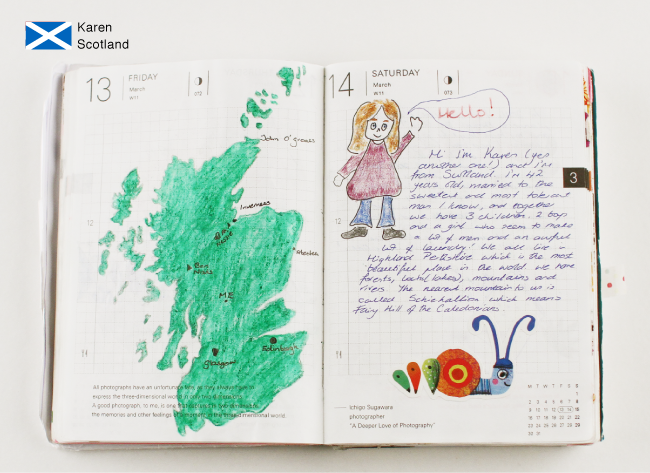 Karen
Scotland
13
FRIDAY
March
W11
072
John O'groats
Inverness
Ben
Nevis
ME
Edinburgh
Glasgow
12
11
All photographs have an unfortunate
express the three-dimensional world
A good photograph, to me, is one that
the memories and other feelings of a moment in the three-dimensional world.
14
SATURDAY
March
W11
073
Hello!
3
Hi i'm Karen (yes
another one!) and i'm
from Scotland. i'm 42
years old, married to the
sweetest and most tolerant
man I know, and together
we have 3 children. 2 boys
and a girl who seem to make
a lot of mess and an awful
lot of laundry! We all live in
Highland Perthshire which is the most
beautiful place in the world. we have
forests, lochs (lakes), mountains and
rivers. The nearest mountain to us is
called Schiehallion which means
Fairy Hill of the Caledonians.
12
11
Ichigo Sugawara
photographer
"A Deeper Love of Photography"
M T W T F S S
1
2 3 4 5 6 7 8
9 10 11 12 13 14 15
16 17 18 19 20 21 22
23 24 25 26 27 28 29
30 31